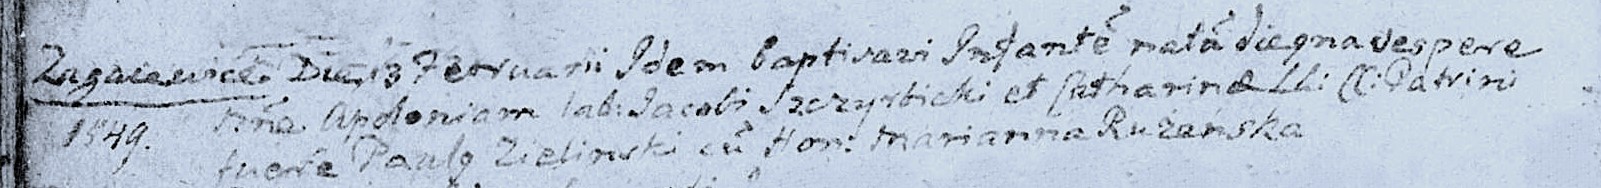 Zagaiewice Die 13 Februarii Idem baptisavi Infantē natā die qna vespere
1549. nōie Apoloniam lab: Jacobi Szczyrbicki et Catharinæ LL: CC: Patrini
fuere Paulq Zielinski cū Hon: Marianna Ruzanska